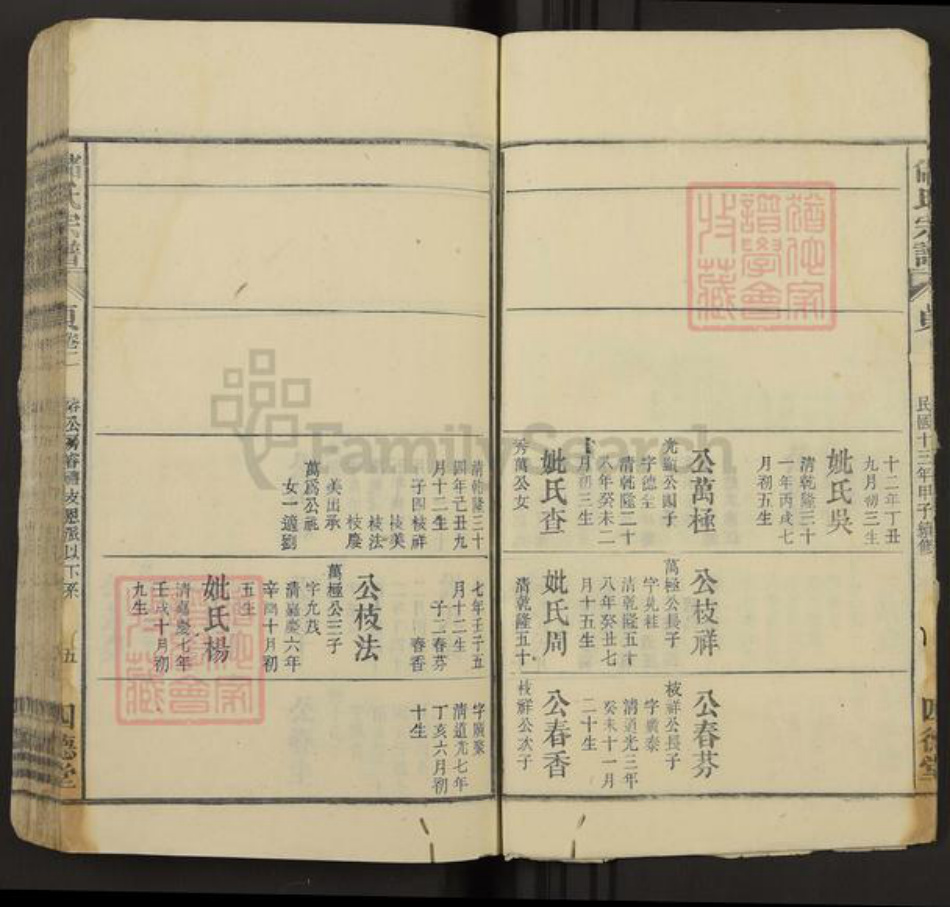 氏宗譜
民國十三年甲子續修
十二年丁丑
九月初三生
妣氏吳
清乾隆三十
一年丙戌七
月初五生
公萬極
光顯公四子
字德全
清乾隆二十
八年癸未二
月初三生
妣氏查
秀萬公女
清乾隆三十
四年己丑九
月十二生
子四枝祥
枝美
枝法
枝慶
美出承
萬爲公祧
女一適劉
公枝祥
萬極公長子
清乾隆五十
八年癸丑七
月十五生
妣氏周
清乾隆五十
七年壬子五
月十二生
子二春芬
春香
公枝法
萬極公三子
字允茂
清嘉慶六年
辛酉十月初
五生
妣氏楊
清嘉慶七年
壬戌十月初
九生
公春芬
枝祥公長子
字廣泰
清道光三年
癸未十一月
二十生
公春香
枝祥公次子
字廣聚
清道光七年
丁亥六月初
十生
氏宗譜
貞卷二
五
四德堂
FamilySearch